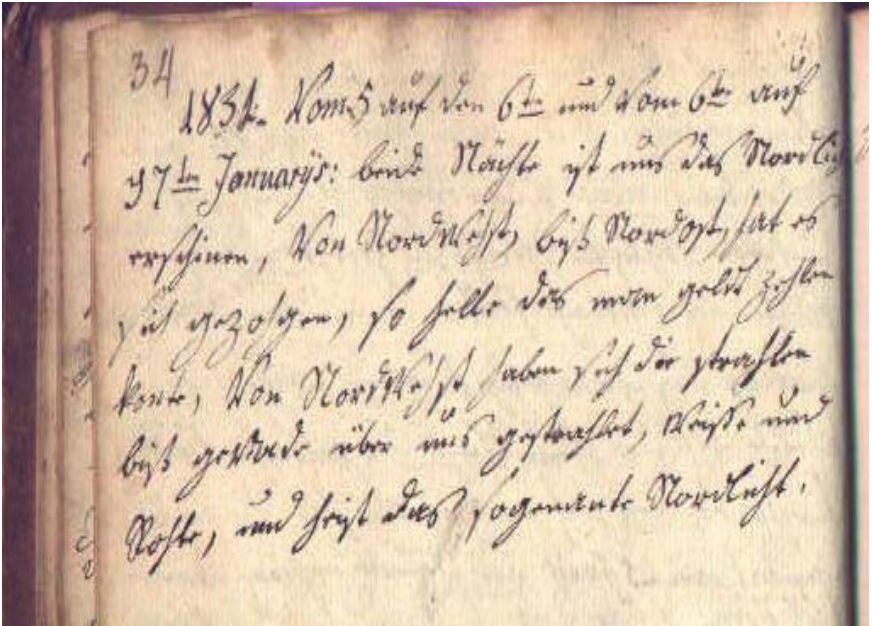 34
1831. Vom 5 auf den 6ten und vom 6ten auf
7ten Januarÿs: beide Nächte ist uns das Nordlich
erschinen, Von NordWesst, biß Nordost, hat es
sich gezohgen, so helle das man geld zehlen
konte, Von NordWesst haben sich die strahlen
biß gerade über uns gestrahlet, Weisse und
Rohte, und heist das sogenante Nordlicht.